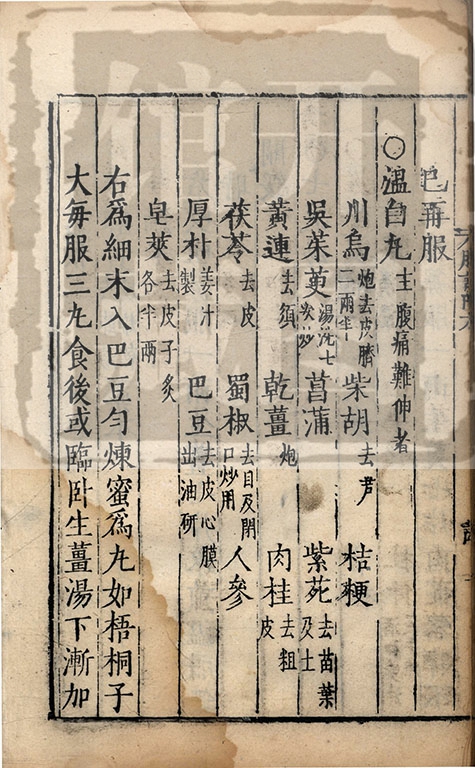 巴再服
○溫白丸主腹痛難伸者
川烏炮去皮臍二兩半 柴胡去芦 桔梗
吳茱萸湯洗七次炒 菖蒲 紫菀去苗葉及土
黃連去須 乾薑炮 肉桂去粗皮
茯苓去皮 蜀椒去目及閉口炒用 人參
厚朴姜汁製 巴豆去皮心膜出油研
皂莢去皮子炙各半兩
右爲細末入巴豆勻煉蜜爲丸如梧桐子
大每服三丸食後或臨卧生薑湯下漸加